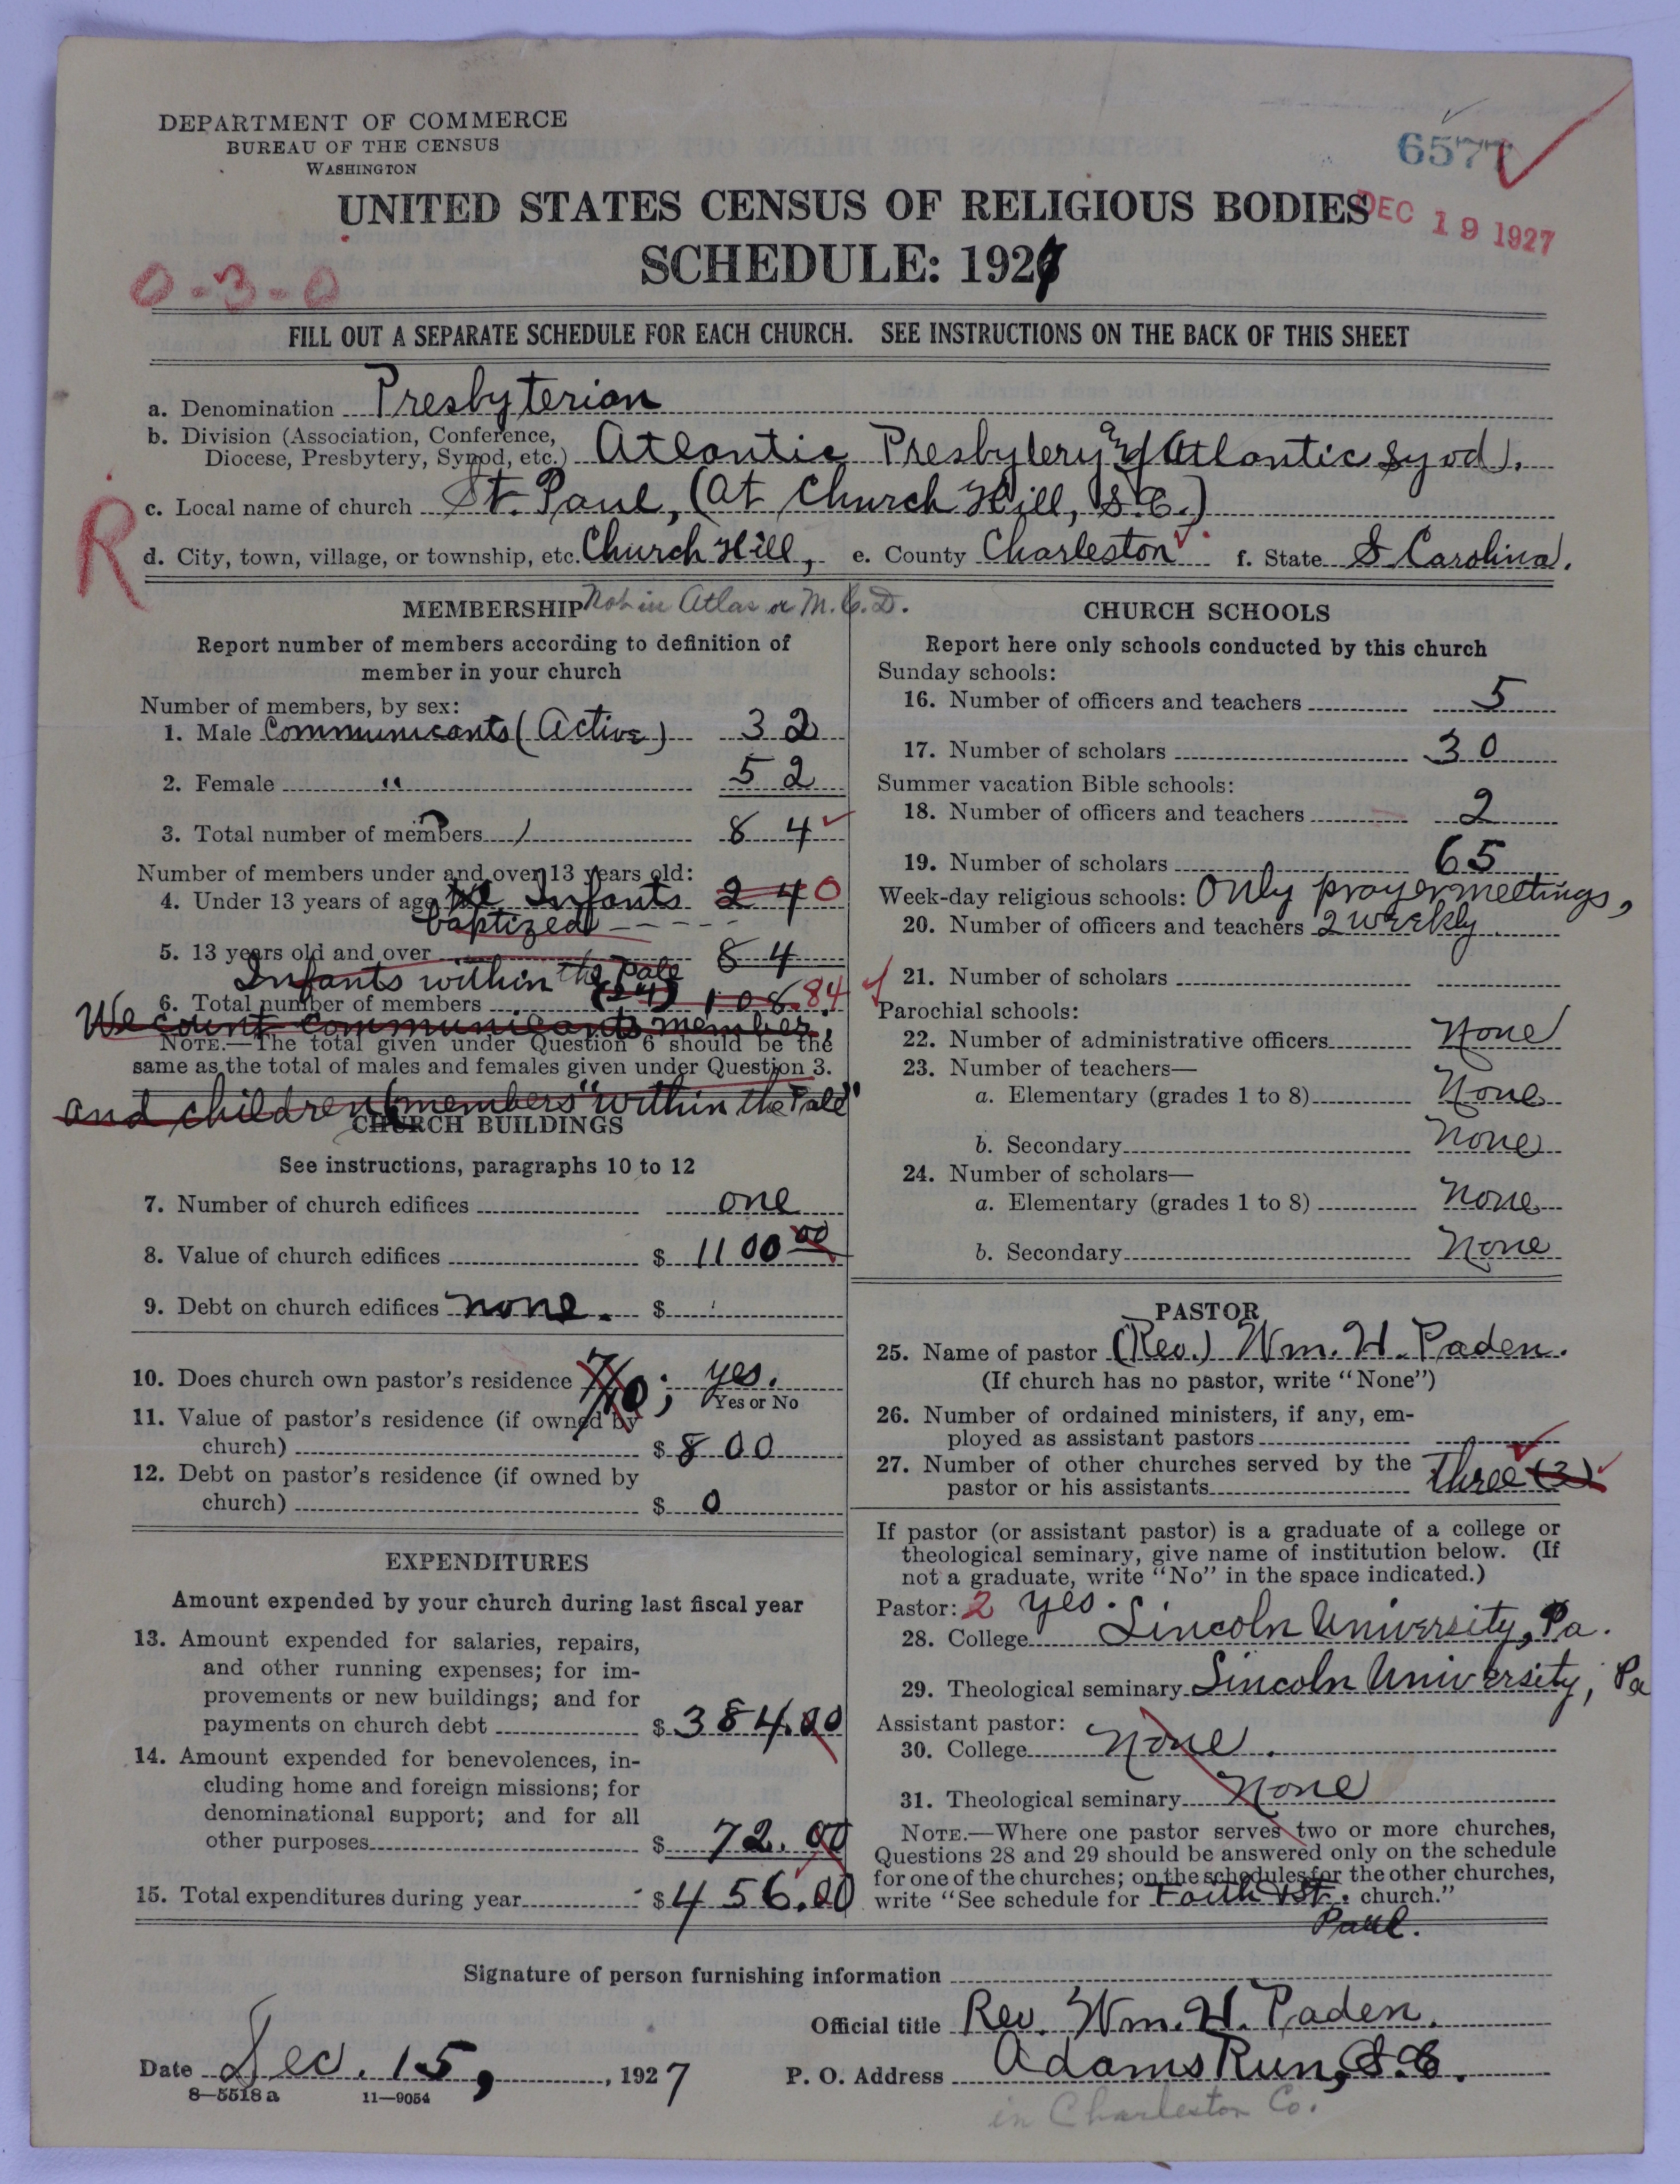 DEPARTMENT OF COMMERCE
BUREAU OF THE CENSUS
WASHINGTON
6577
UNITED STATES CENSUS OF RELIGIOUS BODIES
DEC 19 1927
SCHEDULE: 1927
0-3-0
FILL OUT A SEPARATE SCHEDULE FOR EACH CHURCH. SEE INSTRUCTIONS ON THE BACK OF THIS SHEET
a. Denomination Presbyterian
b. Division (Association, Conference, Diocese, Presbytery, Synod, etc.) Atlantic Presbytery and of Atlantic Syod.
c. Local name of church St. Paul, (at Church Hill, S.C.)
R
d. City, town, village, or township, etc. Church Hill, e. County Charleston f. State S Carolina.
MEMBERSHIP Not in Atlas or M.C.D.
Report number of members according to definition of
member in your church
Number of members, by sex:
1. Male Communicants (Active) 32
2. Female " 52
3. Total number of members 84
Number of members under and over 13 years old:
4. Under 13 years of age Infants 24 0
baptized
5. 13 years old and over 84
Infants within the Pale
6. Total number of members (24) 108 84
We count communicants member,
NOTE.—The total given under Question 6 should be the
same as the total of males and females given under Question 3.
and children (members "within the Pale"
CHURCH BUILDINGS
See instructions, paragraphs 10 to 12
7. Number of church edifices one
8. Value of church edifices $ 1100 00
9. Debt on church edifices none. $
10. Does church own pastor's residence ; yes.
Yes or No
11. Value of pastor's residence (if owned by
church) $ 800
12. Debt on pastor's residence (if owned by
church) $ 0
EXPENDITURES
Amount expended by your church during last fiscal year
13. Amount expended for salaries, repairs,
and other running expenses; for im-
provements or new buildings; and for
payments on church debt $ 384.00
14. Amount expended for benevolences, in-
cluding home and foreign missions; for
denominational support; and for all
other purposes $ 72.00
15. Total expenditures during year $ 456.00
CHURCH SCHOOLS
Report here only schools conducted by this church
Sunday schools:
16. Number of officers and teachers 5
17. Number of scholars 30
Summer vacation Bible schools:
18. Number of officers and teachers 2
19. Number of scholars 65
Week-day religious schools: Only prayermeetings,
20. Number of officers and teachers 2 weekly.
21. Number of scholars
Parochial schools:
22. Number of administrative officers None
23. Number of teachers—
a. Elementary (grades 1 to 8) None
b. Secondary None
24. Number of scholars—
a. Elementary (grades 1 to 8) None
b. Secondary None
PASTOR
25. Name of pastor (Rev.) Wm. H. Paden.
(If church has no pastor, write "None")
26. Number of ordained ministers, if any, em-
ployed as assistant pastors
27. Number of other churches served by the
pastor or his assistants Three (3)
If pastor (or assistant pastor) is a graduate of a college or
theological seminary, give name of institution below. (If
not a graduate, write "No" in the space indicated.)
Pastor: 2 yes.
28. College Lincoln University, Pa.
29. Theological seminary Lincoln University, Pa
Assistant pastor:
30. College None.
31. Theological seminary None
NOTE.—Where one pastor serves two or more churches,
Questions 28 and 29 should be answered only on the schedule
for one of the churches; on the schedules for the other churches,
write "See schedule for Faith & St. church."
Paul.
Signature of person furnishing information
Official title Rev. Wm. H. Paden.
Date Dec. 15, 1927
P. O. Address Adams Run, S.C.
8—5518 a 11—9054
in Charleston Co.